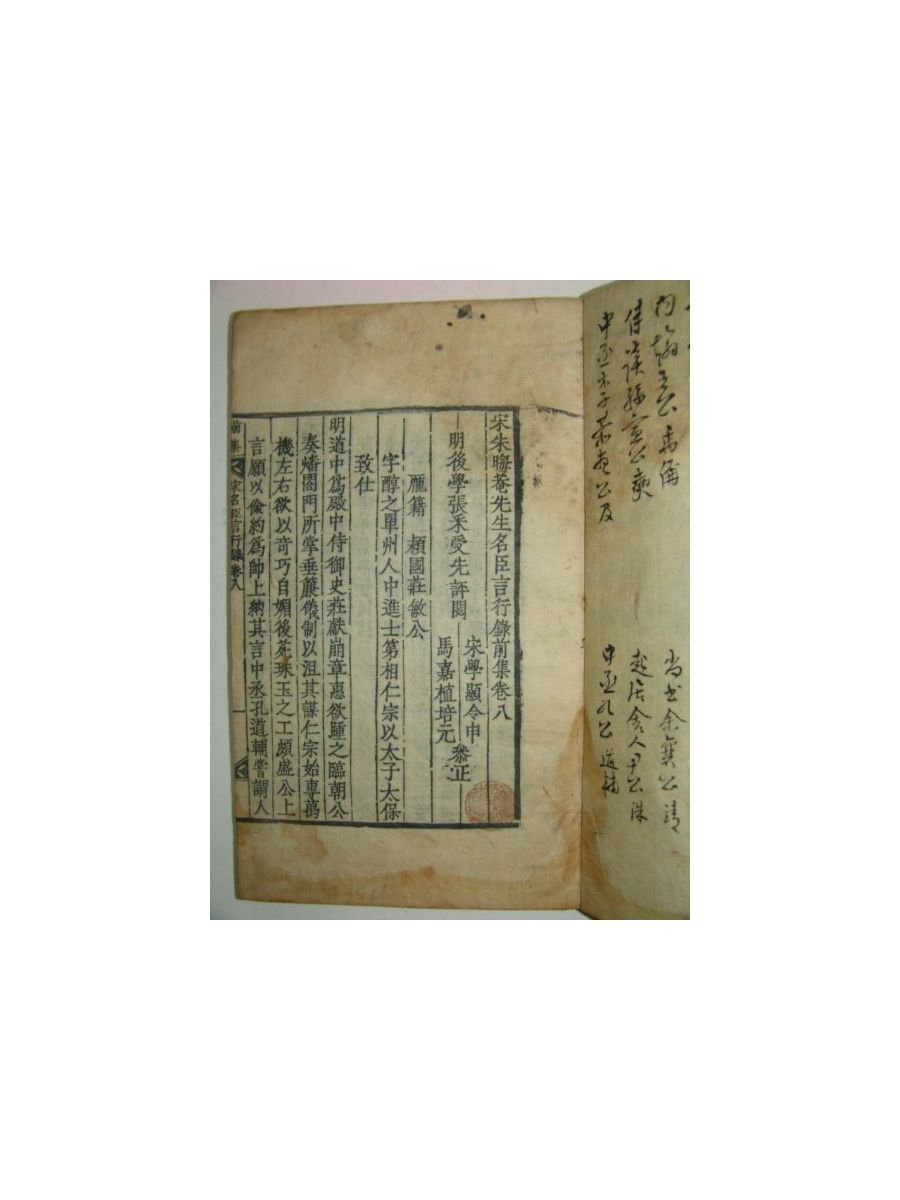 尚書余襄公靖
侍讀孫宣公奭
起居舍人尹公洙
中丞孔公道輔
宋朱晦菴先生名臣言行錄前集卷八
明後學張采受先評閱
宋學顯令申
馬嘉植培元
叅正
龐籍 潁國莊敏公
字醇之單州人中進士第相仁宗以太子太保
致仕
明道中爲殿中侍御史莊獻崩章惠欲踵之臨朝公
奏燔閤門所掌垂簾儀制以沮其謀仁宗始專萬
機左右欲以奇巧自媚後苑珠玉之工頗盛公上
言願以儉約爲師上納其言中丞孔道輔嘗謂人
前集 宋名臣言行錄卷八 一